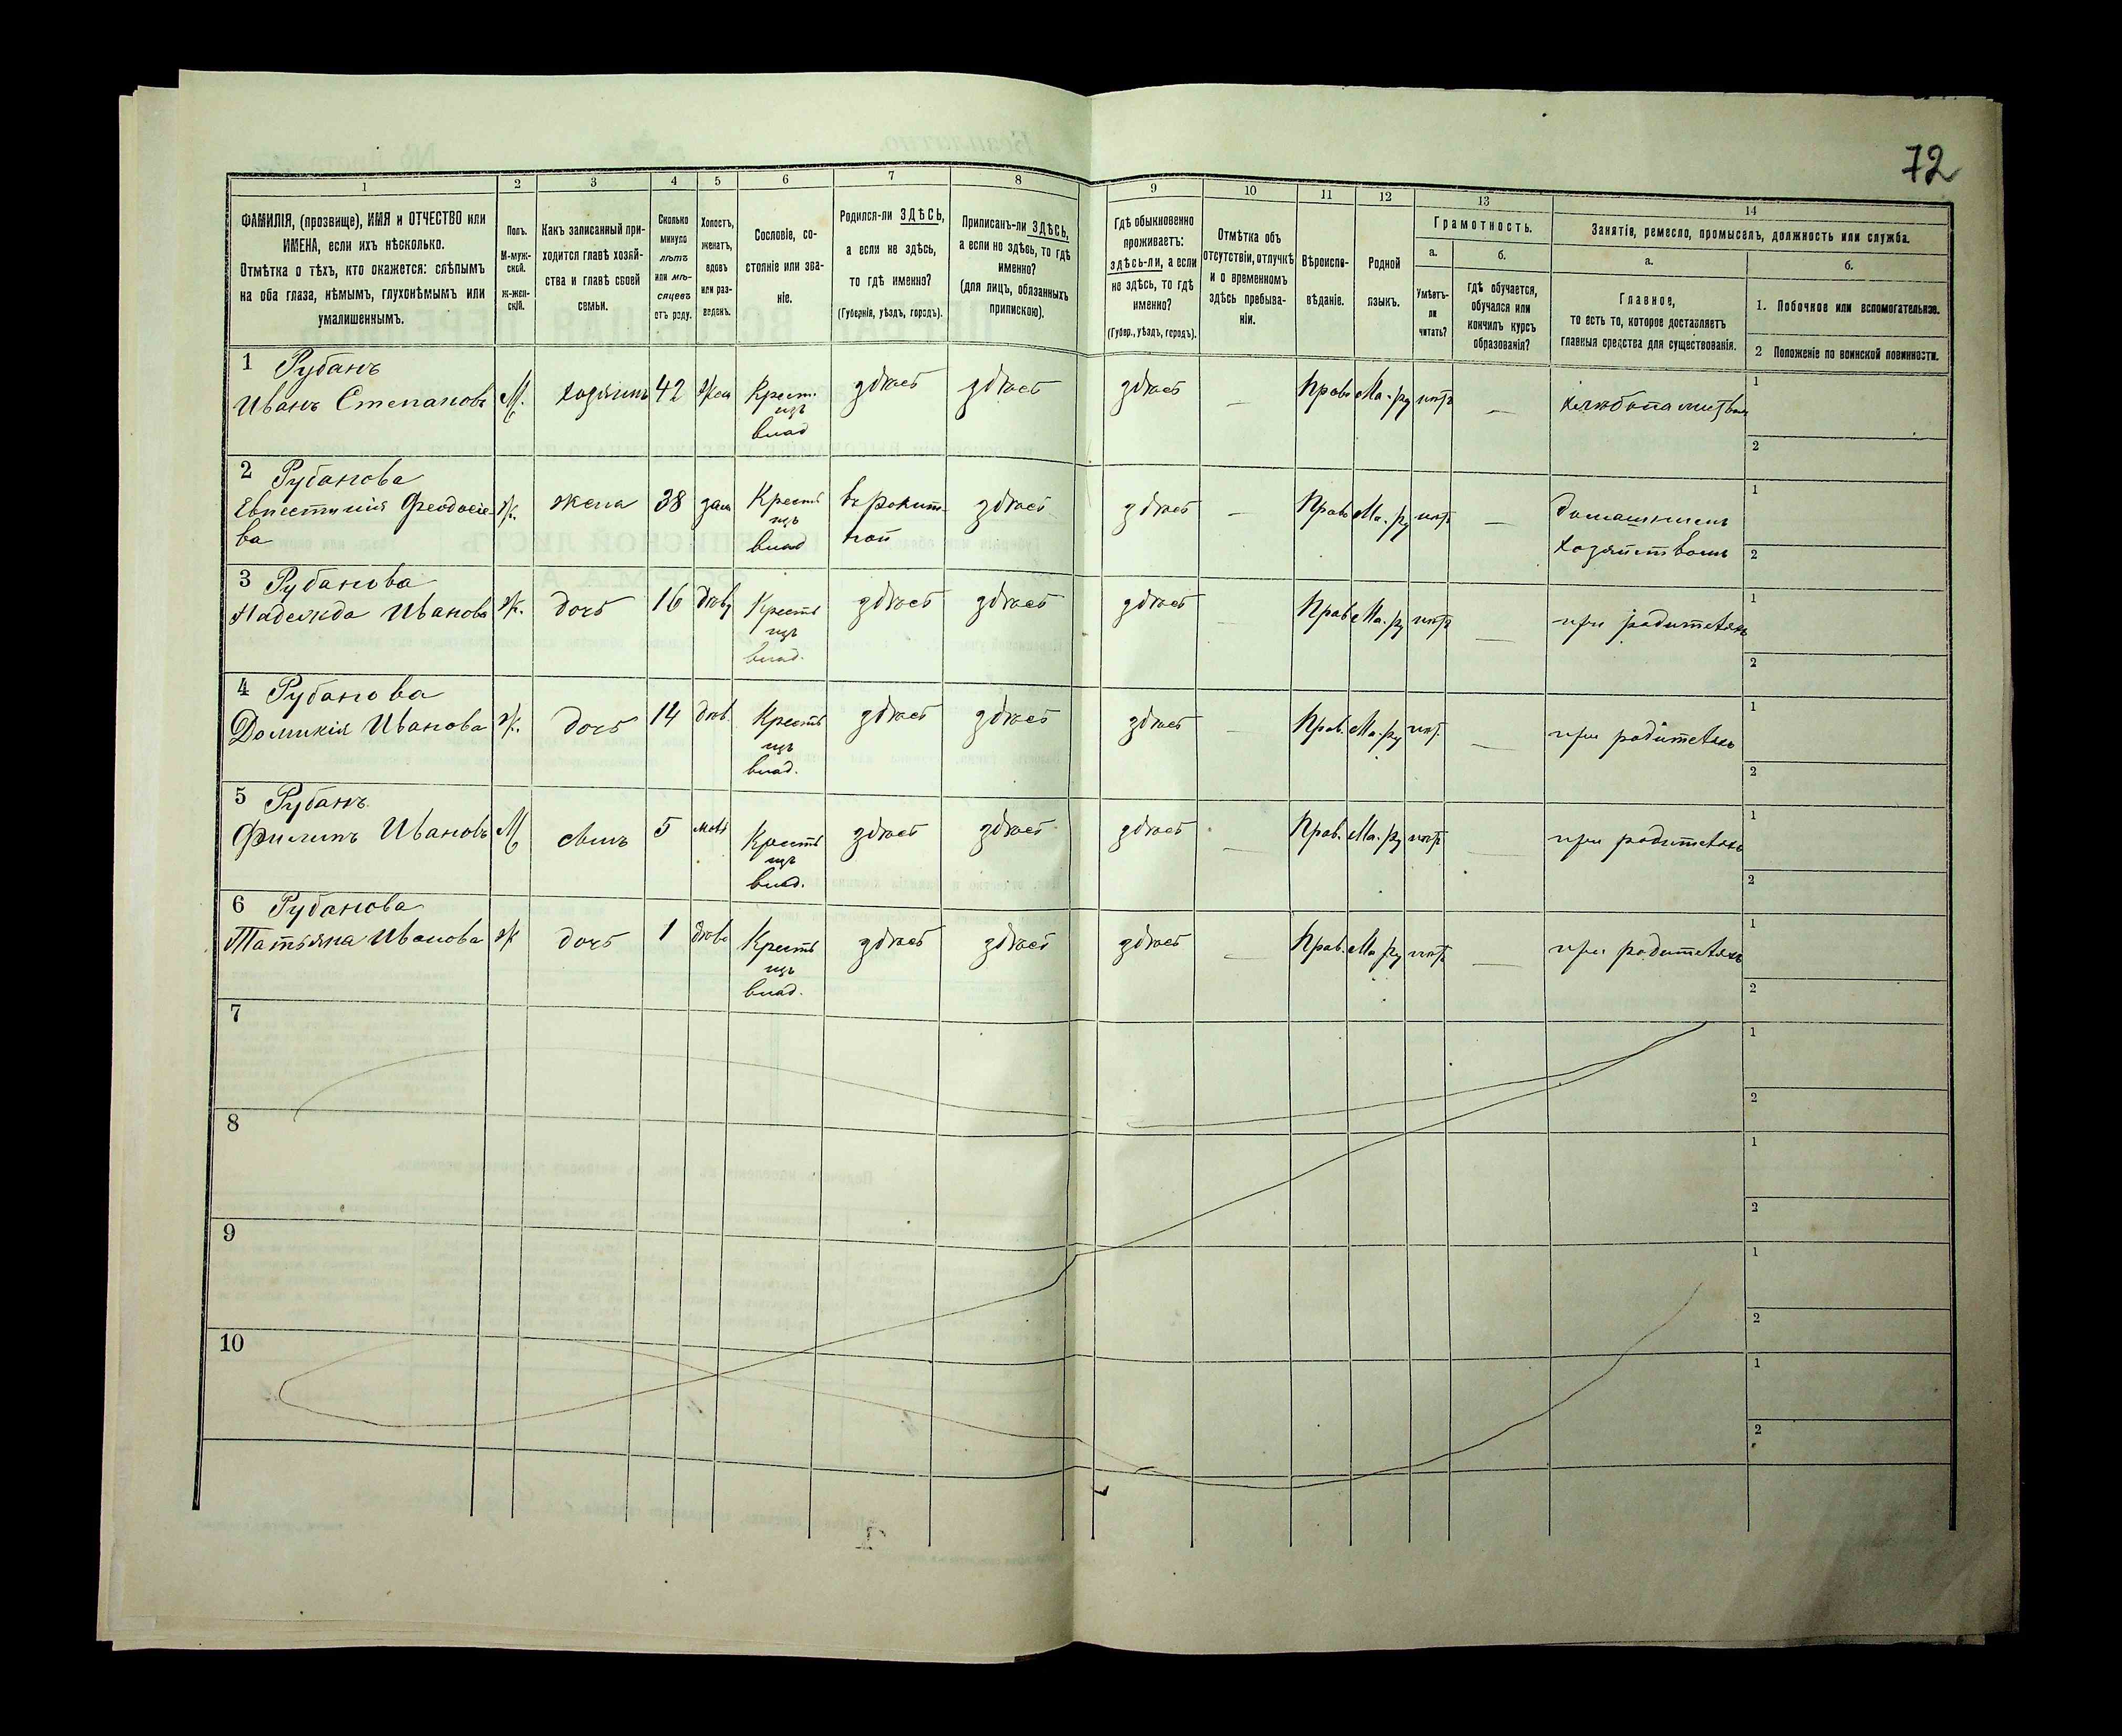 72
1 2 3 4 5 6 7 8 9 10 11 12 13 14
ФАМИЛІЯ, (прозвище), ИМЯ и ОТЧЕСТВО или
ИМЕНА, если ихъ нѣсколько.
Отмѣтка о тѣхъ, кто окажется: слѣпымъ
на оба глаза, нѣмымъ, глухонѣмымъ или
умалишеннымъ.
Полъ.
М-муж-
ской.
Ж-жен-
скій.
Какъ записанный при-
ходится главѣ хозяй-
ства и главѣ своей
семьи.
Сколько
минуло
лѣтъ
или мѣ-
сяцевъ
отъ роду.
Холостъ,
женатъ,
вдовъ
или раз-
веденъ.
Сословіе, со-
стояніе или зва-
ніе.
Родился-ли ЗДѢСЬ,
а если не здѣсь,
то гдѣ именно?
(Губернія, уѣздъ, городъ).
Приписанъ-ли ЗДѢСЬ,
а если не здѣсь, то гдѣ
именно?
(для лицъ, обязанныхъ
припискою).
Гдѣ обыкновенно
проживаетъ:
здѣсь-ли, а если
не здѣсь, то гдѣ
именно?
(Губер., уѣздъ, городъ).
Отмѣтка объ
отсутствіи, отлучкѣ
и о временномъ
здѣсь пребыва-
ніи.
Вѣроиспо-
вѣданіе.
Родной
языкъ.
Грамотность.
а.
Умѣетъ-
ли
читать?
б.
гдѣ обучается,
обучался или
кончилъ курсъ
образованія?
Занятія, ремесло, промыселъ, должность или служба.
а.
Главное,
то есть то, которое доставляетъ
главныя средства для существованія.
б.
1. Побочное или вспомогательное.
2 Положеніе по воинской повинности.
1 Рубанъ
Иванъ Степановъ М. хозяинъ 42 жен Крест. здѣсь здѣсь здѣсь — Прав Ма-ру нѣтъ —
изъ
влад
1
2
2 Рубанова
Феодосіе-
ва ж. жена 38 зам Крестъ здѣсь здѣсь — Прав Ма-ру нѣтъ — домашнимъ
изъ
влад хозяйствомъ
1
2
3 Рубанова
Надежда Иванова ж. дочь 16 дѣв Крестъ здѣсь здѣсь здѣсь — Прав Ма-ру нѣтъ — при родителяхъ
изъ
влад.
1
2
4 Рубанова
Домникія Иванова ж. дочь 14 дѣв. Крестъ здѣсь здѣсь здѣсь — Прав. Ма-ру нѣт. — при родителяхъ
изъ
влад.
1
2
5 Рубанъ
Филипъ Ивановъ М сынъ 5 Крестъ здѣсь здѣсь здѣсь — Прав. Ма-ру нѣтъ — при родителяхъ
изъ
влад.
1
2
6 Рубанова
Татьяна Иванова ж дочь 1 дѣв Крестъ здѣсь здѣсь здѣсь — Прав. Ма ру нѣтъ — при родителяхъ
изъ
влад.
1
2
7
1
2
8
1
2
9
1
2
10
1
2